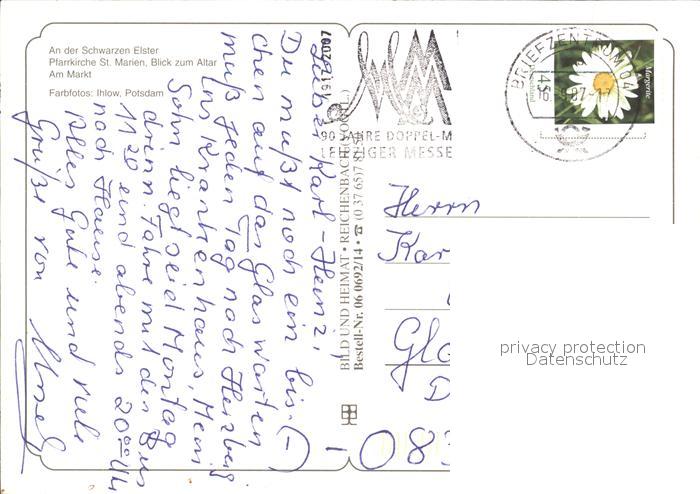 An der Schwarzen Elster
Pfarrkirche St. Marien, Blick zum Altar
Am Markt
Farbfotos: Ihlow, Potsdam
19.12.2007
Lieber Karl-Heinz,
Du mußt noch ein bis.(-)
chen auf das Glas warten
muß jeden Tag nach Herzberg
ins Krankenhaus, Mein
Sohn liegt seit Montag
drinn. Fahre mit des Bus
11 20 und abends 20 00 Uhr
nach Hause.
Alles Gute und viele
Grüße von Ursel
BILD UND HEIMAT • REICHENBACH (VOGTL.)
Bestell-Nr. 06 0692/14 • ☎ (0 37 65)
90 JAHRE DOPPEL-M
LEIPZIGER MESSE
BRIEFZENTRUM 04
Margerite
Herrn
Kar
Glo
D
-083
privacy protection
Datenschutz